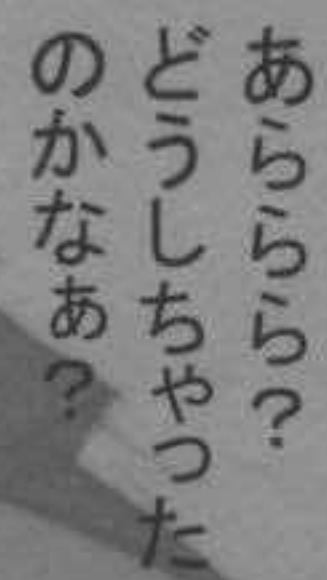 あららら？
どうしちゃった
のかなぁ？